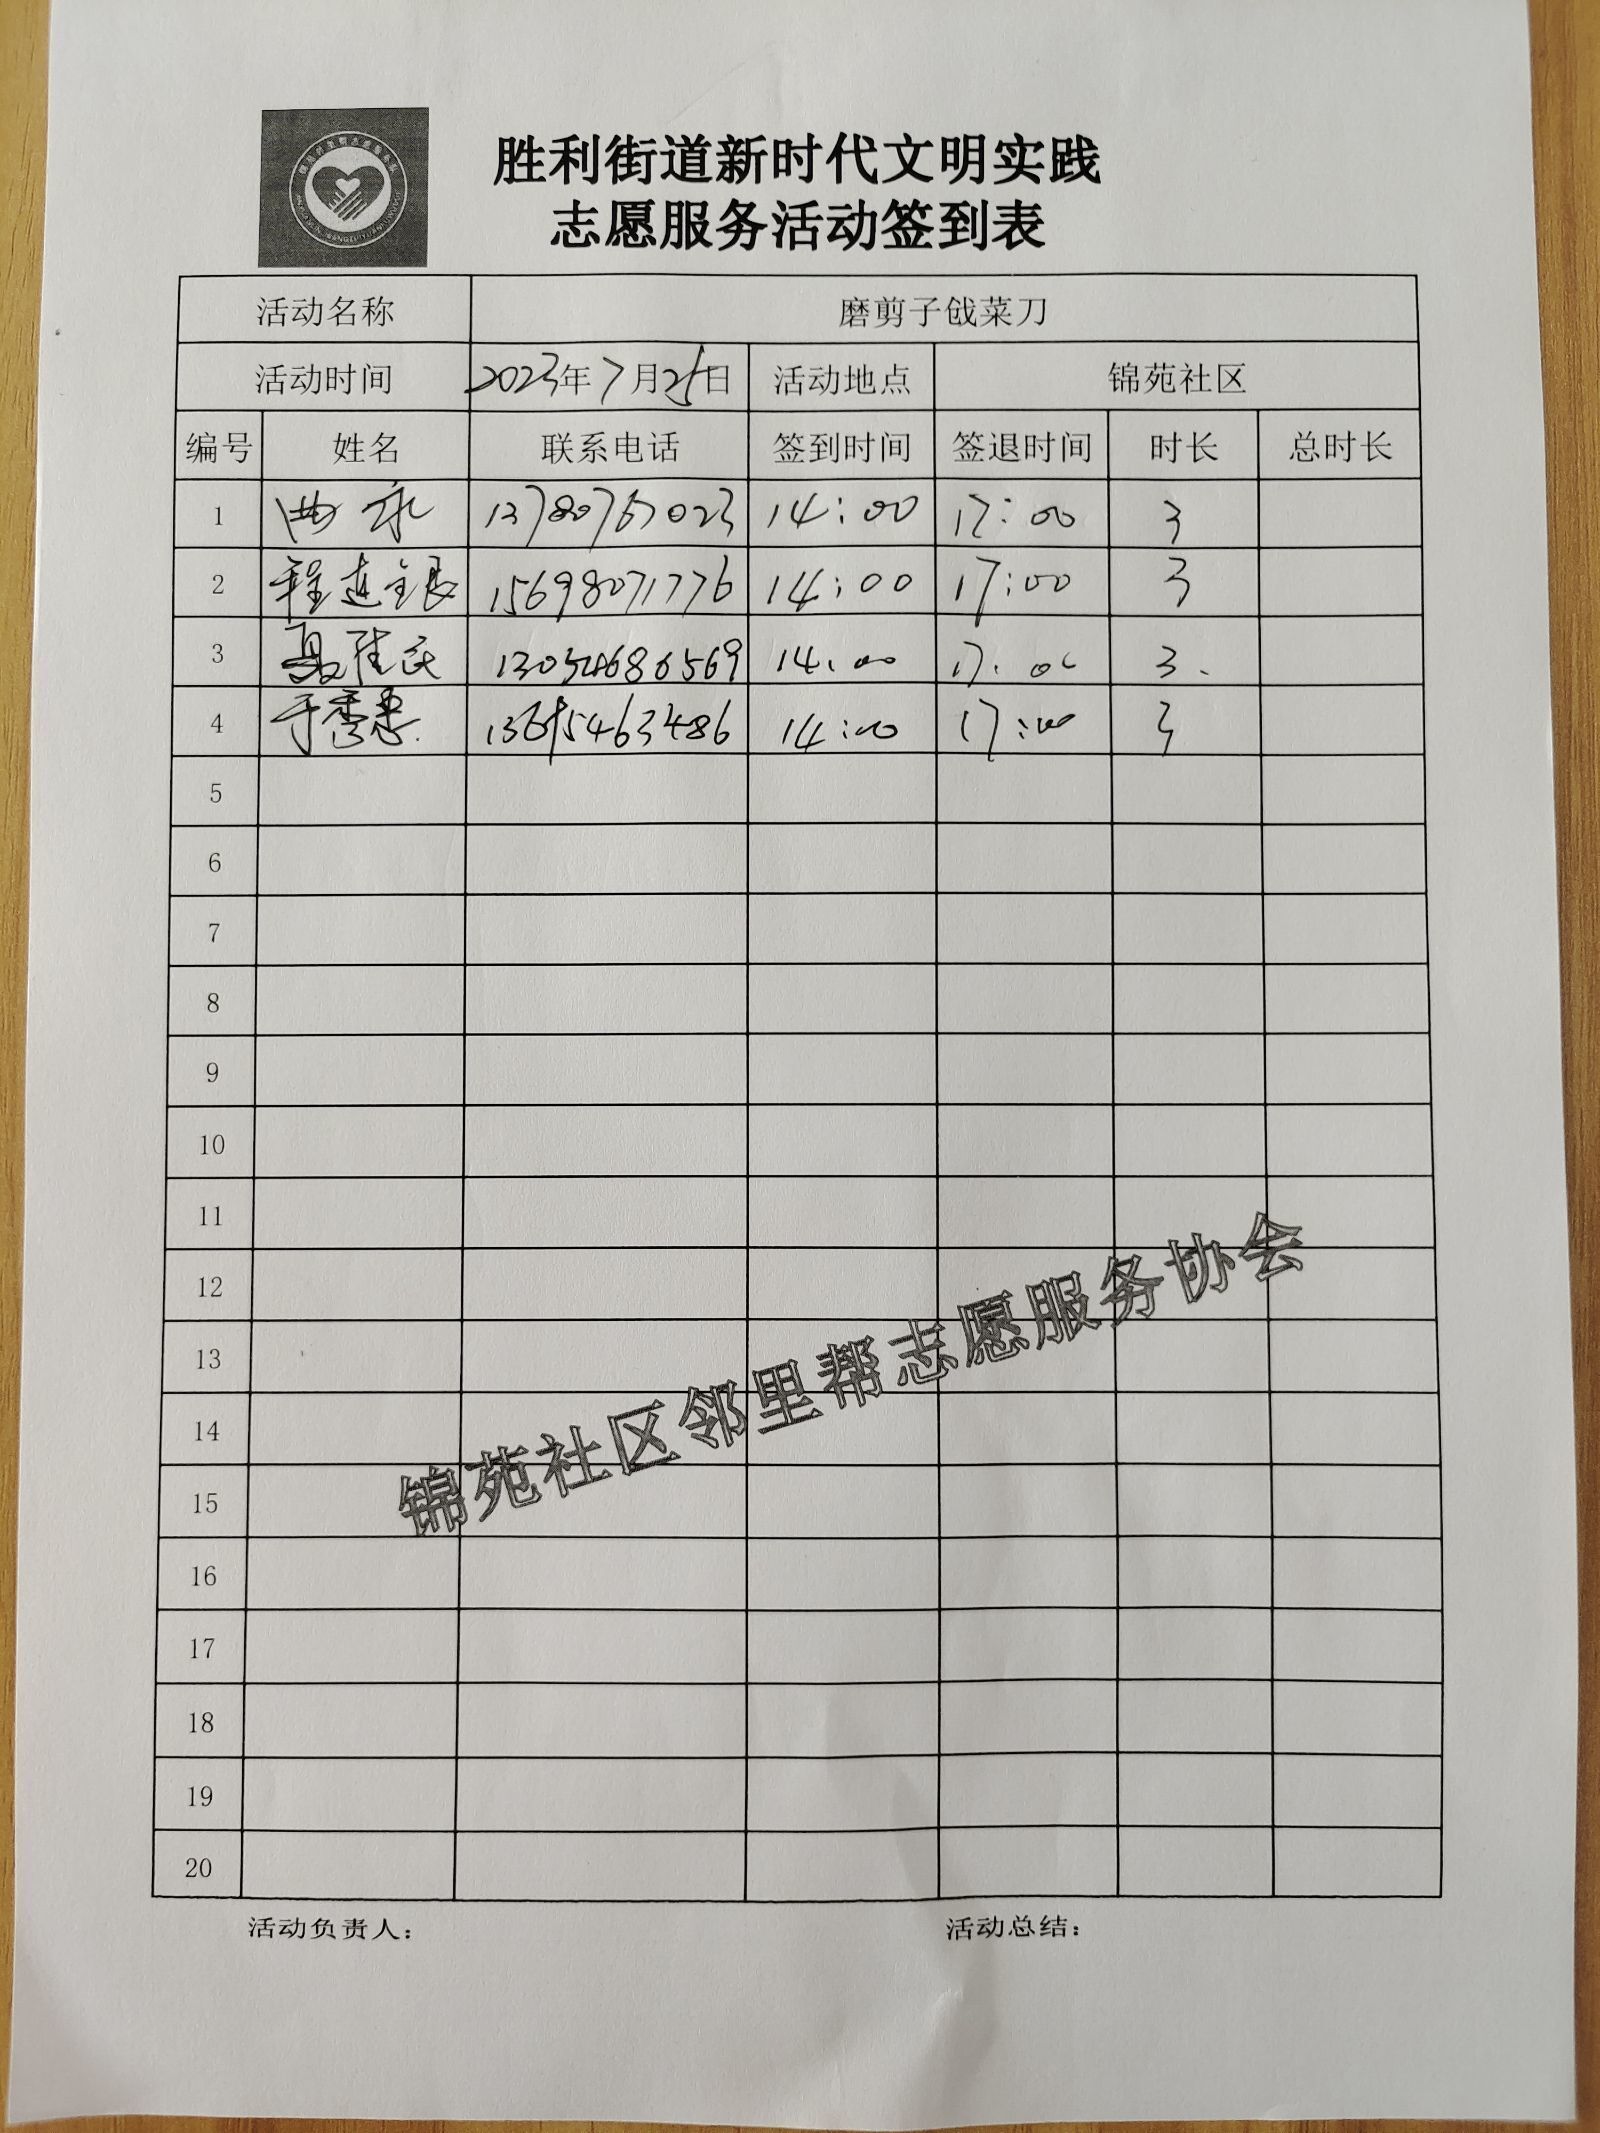 胜利街道新时代文明实践
志愿服务活动签到表
活动名称 磨剪子戗菜刀
活动时间 2023年7月25日 活动地点 锦苑社区
编号 姓名 联系电话 签到时间 签退时间 时长 总时长
1 曲永 13780767023 14:00 17:00 3
2 程连银 15698071776 14:00 17:00 3
3 13054686569 14:00 17:00 3.
4 于秀惠 13615463486 14:00 17:00 3
5
6
7
8
9
10
11
12
13
14
15
16
17
18
19
20
锦苑社区邻里帮志愿服务协会
活动负责人： 活动总结：